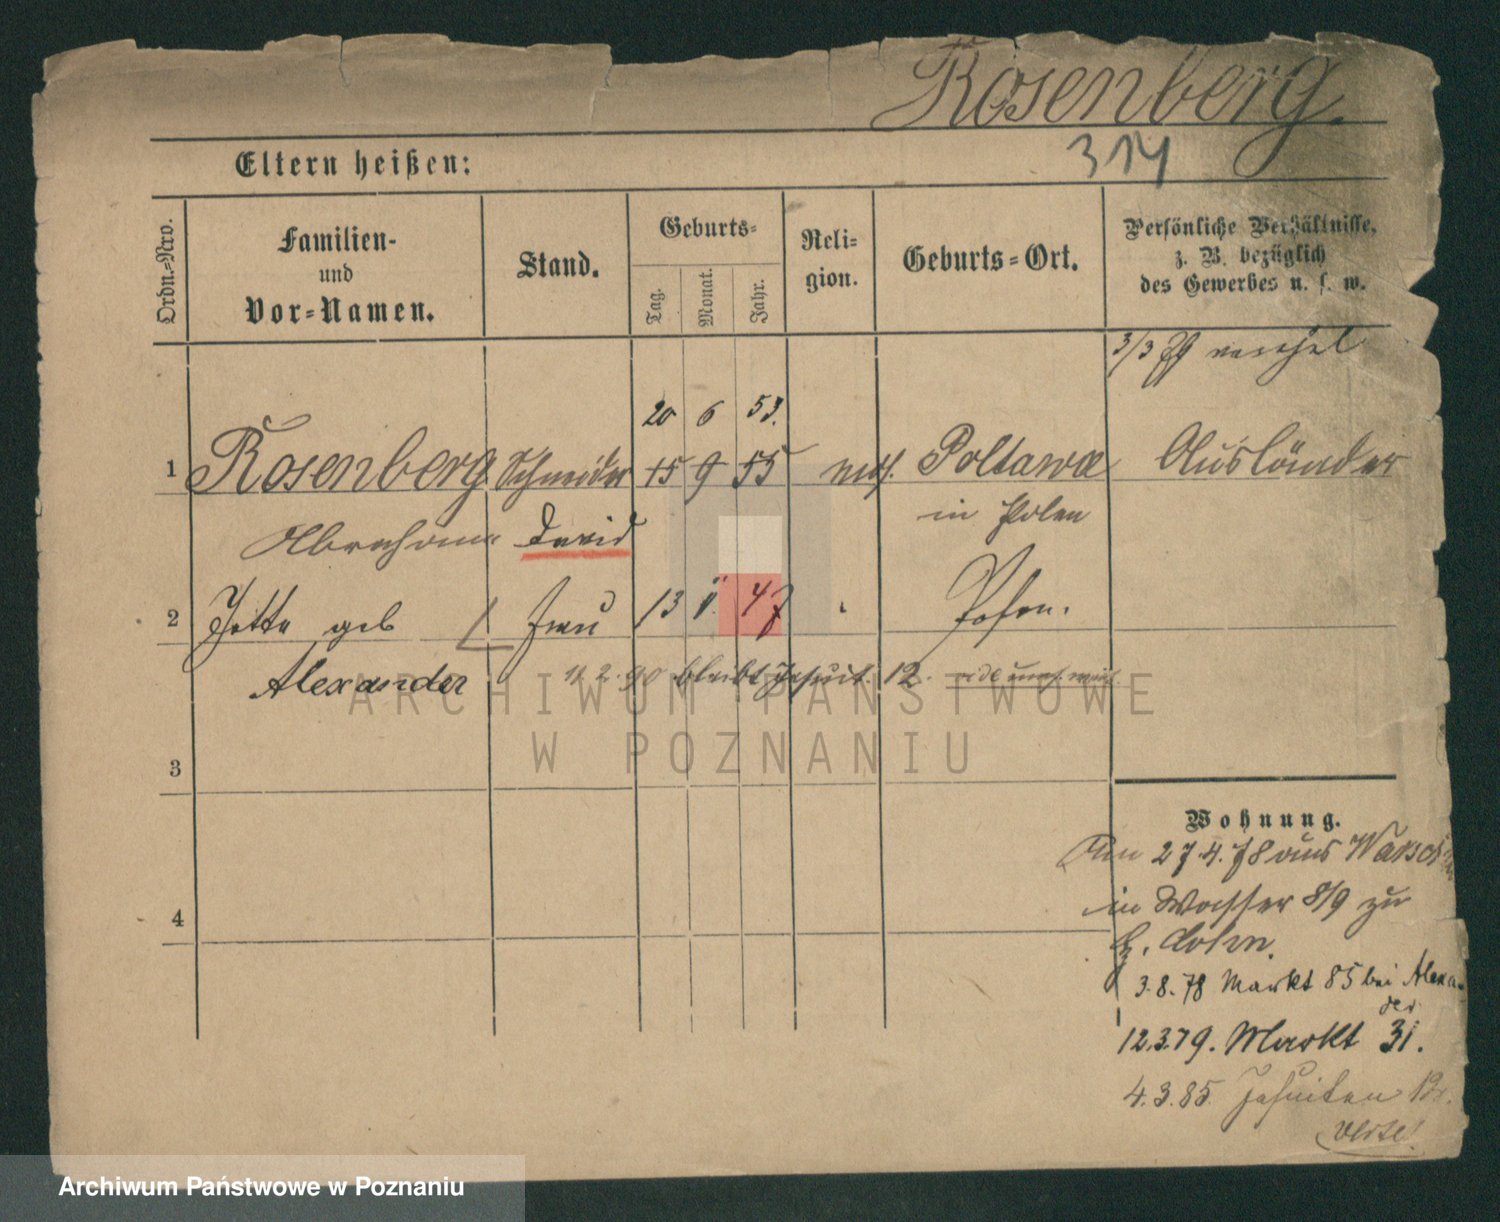 Rosenberg.
314
Eltern heißen:
Ordn.=Nro.
Familien-
und
Vor=Namen.
Stand.
Geburts=
Tag.
Monat.
Jahr.
Reli=
gion.
Geburts=Ort.
Persönliche Verhältnisse,
z. B. bezüglich
des Gewerbes u. s. w.
3/3 79
20 6 53.
1 Rosenberg Schneider 15 9 55 mos. Poltawa Ausländer
Abraham David in Polen
2 Jette geb Frau 13 47 Posen.
Alexander 11 2. 90 bleibt Jesuit. 12.
ARCHIWUM PAŃSTWOWE
W POZNANIU
3
Wohnung.
27.4.78 aus
4
in Wasser 8/9 zu
Cohn.
3.8.78 Markt 85 bei Alexan-
der
12.3.79. Markt 31.
4.3.85. Jesuiten 12.
verte!
Archiwum Państwowe w Poznaniu